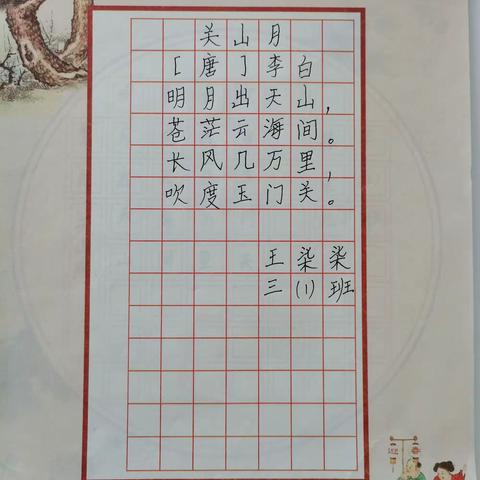 关山月
[唐]李白
明月出天山，
苍茫云海间。
长风几万里，
吹度玉门关。
王染染
三(1)班